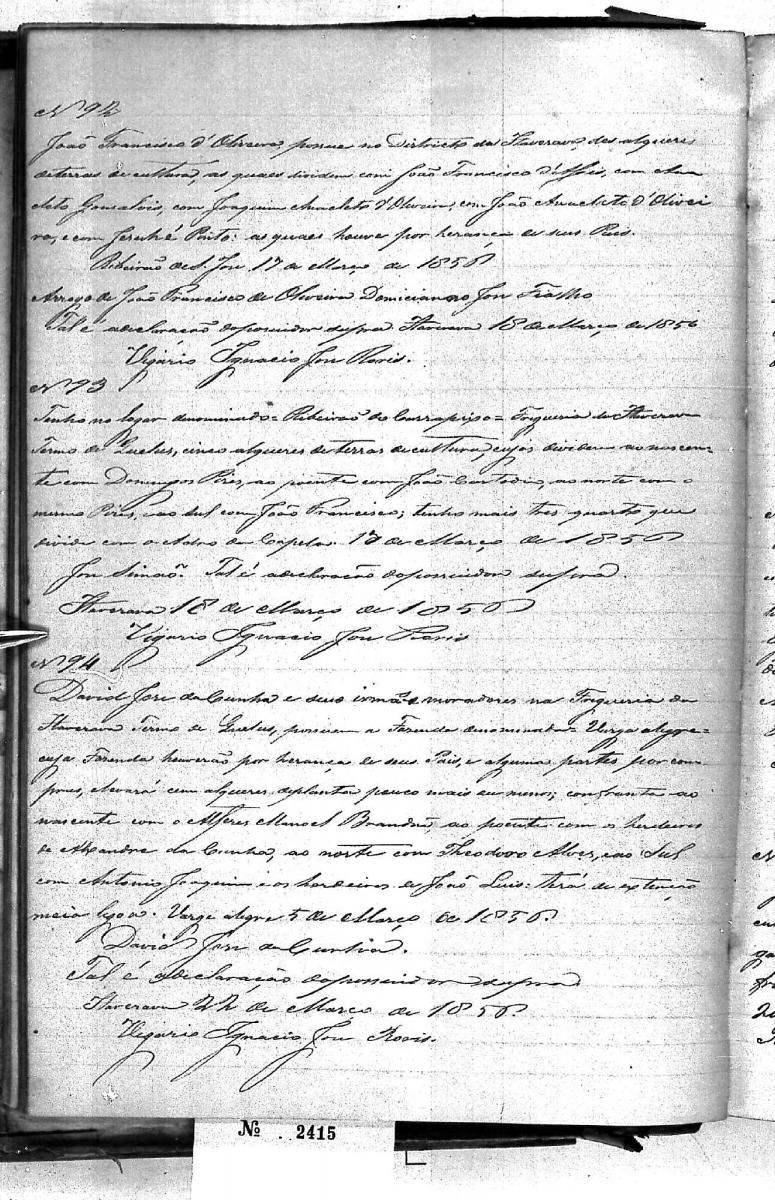 N 92
João Francisco d'Oliveira, possue no Districto da Itaverava des alqueres
de terras de cultura, as quaes dividem com João Francisco d'Assis, com Ana
cleto Gonsalvis, com Joaquim Anacleto d'Oliveira, com João Anacleto d'Olivei
ra, e com José Porto: as quaes houve por herança de seus Pais.
Ribeirão de S. José 17 de Março de 1856
Arrogo de João Francisco de Oliveira Domiciano José Fialho
Tal é a declaração do possuidor supra Itaverava 18 de Março de 1856
Vigario Ignacio José
N 93
Tenho no logar denominado = Ribeirão do Carrapixo = Freguesia de Itaverava
Termo de Quelus, cinco alqueres de terras de cultura, cujos dividem ao nascen-
te com Domingos Pires, ao poente com João Custodio, ao norte com o
mesmo Pires, e ao sul com João Francisco; tenho mais tres quartos que
divide com o Adro da Capela. 17 de Março de 1856
José Simaõ. Tal é a declaração do possuidor supra.
Itaverava 18 de Março de 1856
Vigario Ignacio José
N 94
David Jose da Cunha e seus irmãos moradores na Freguesia da
Itaverava Termo de Quelus, possuem a Fazenda denominada = Varge alegre =
cuja Fazenda houverão por herança de seus Pais, e algumas partes por com
pras, e levará cem alqueres de planta pouco mais ou menos; confronta ao
nascente com o Alferes Manoel Brandão, ao poente com os herdeiros
de Alexandre da Cunha, ao norte com Theodoro Alves, e ao Sul
com Antonio Joaquim e os herdeiros de João Luis: terá de extenção
meia legoa. Varge alegre 5 de Março de 1856.
David Jose da Cunha.
Tal é a declaração do possuidor supra
Itaverava 22 de Março de 1856.
Vigario Ignacio José
No. 2415